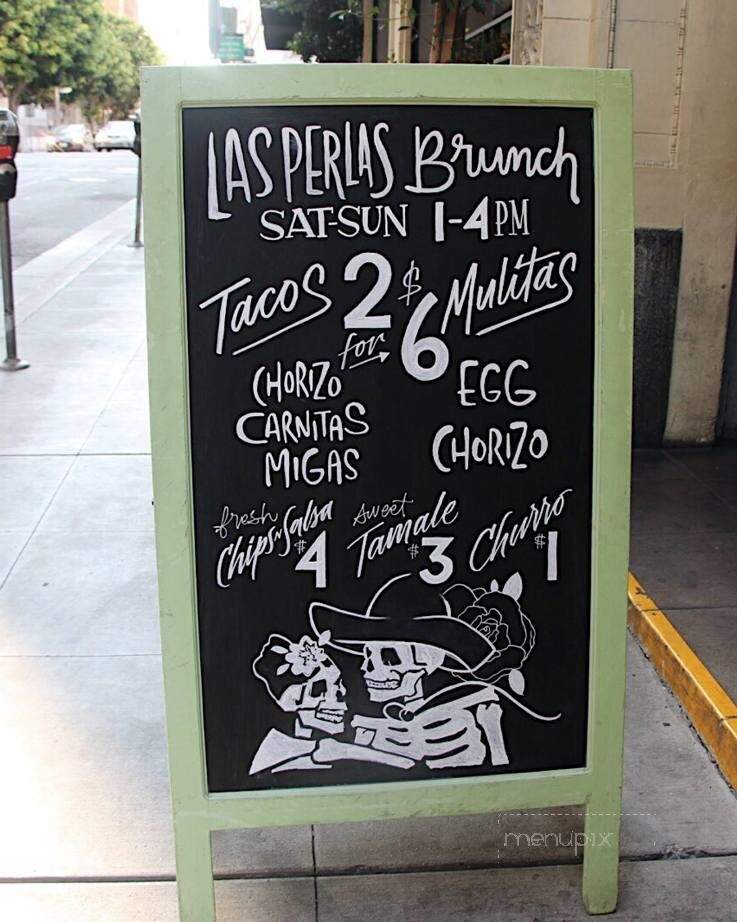 LAS PERLAS Brunch
SAT-SUN 1-4 PM
Tacos 2 for $6 Mulitas
CHORIZO
CARNITAS
MIGAS
EGG
CHORIZO
fresh Chips n Salsa $4
sweet Tamale $3
Churro $1
menupix